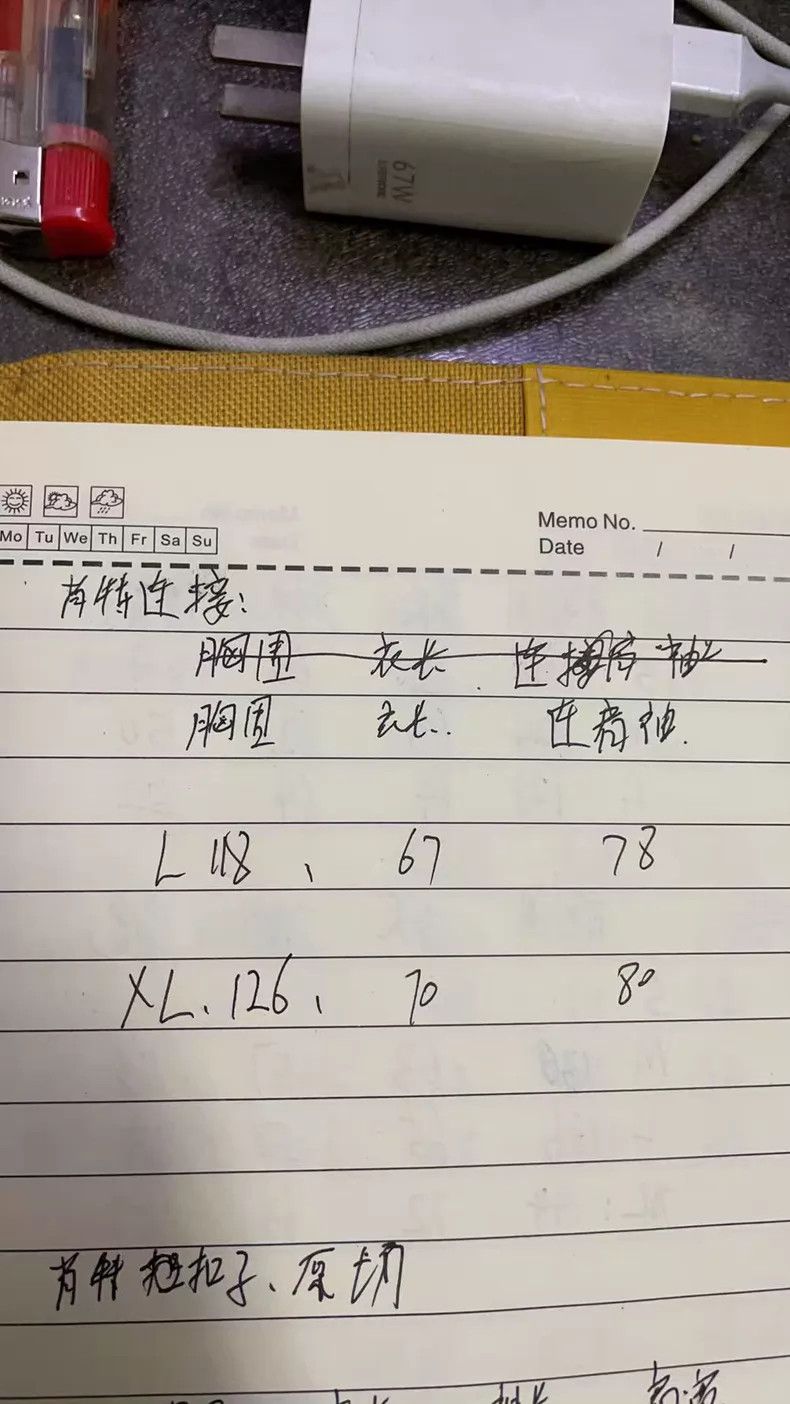 67W
Memo No.
Mo Tu We Th Fr Sa Su
Date / /
肖特连接:
胸围 衣长 连
胸围 衣长 连肩袖
L 118、 67 78
XL、126、 70 80
肖特 扣子、原切